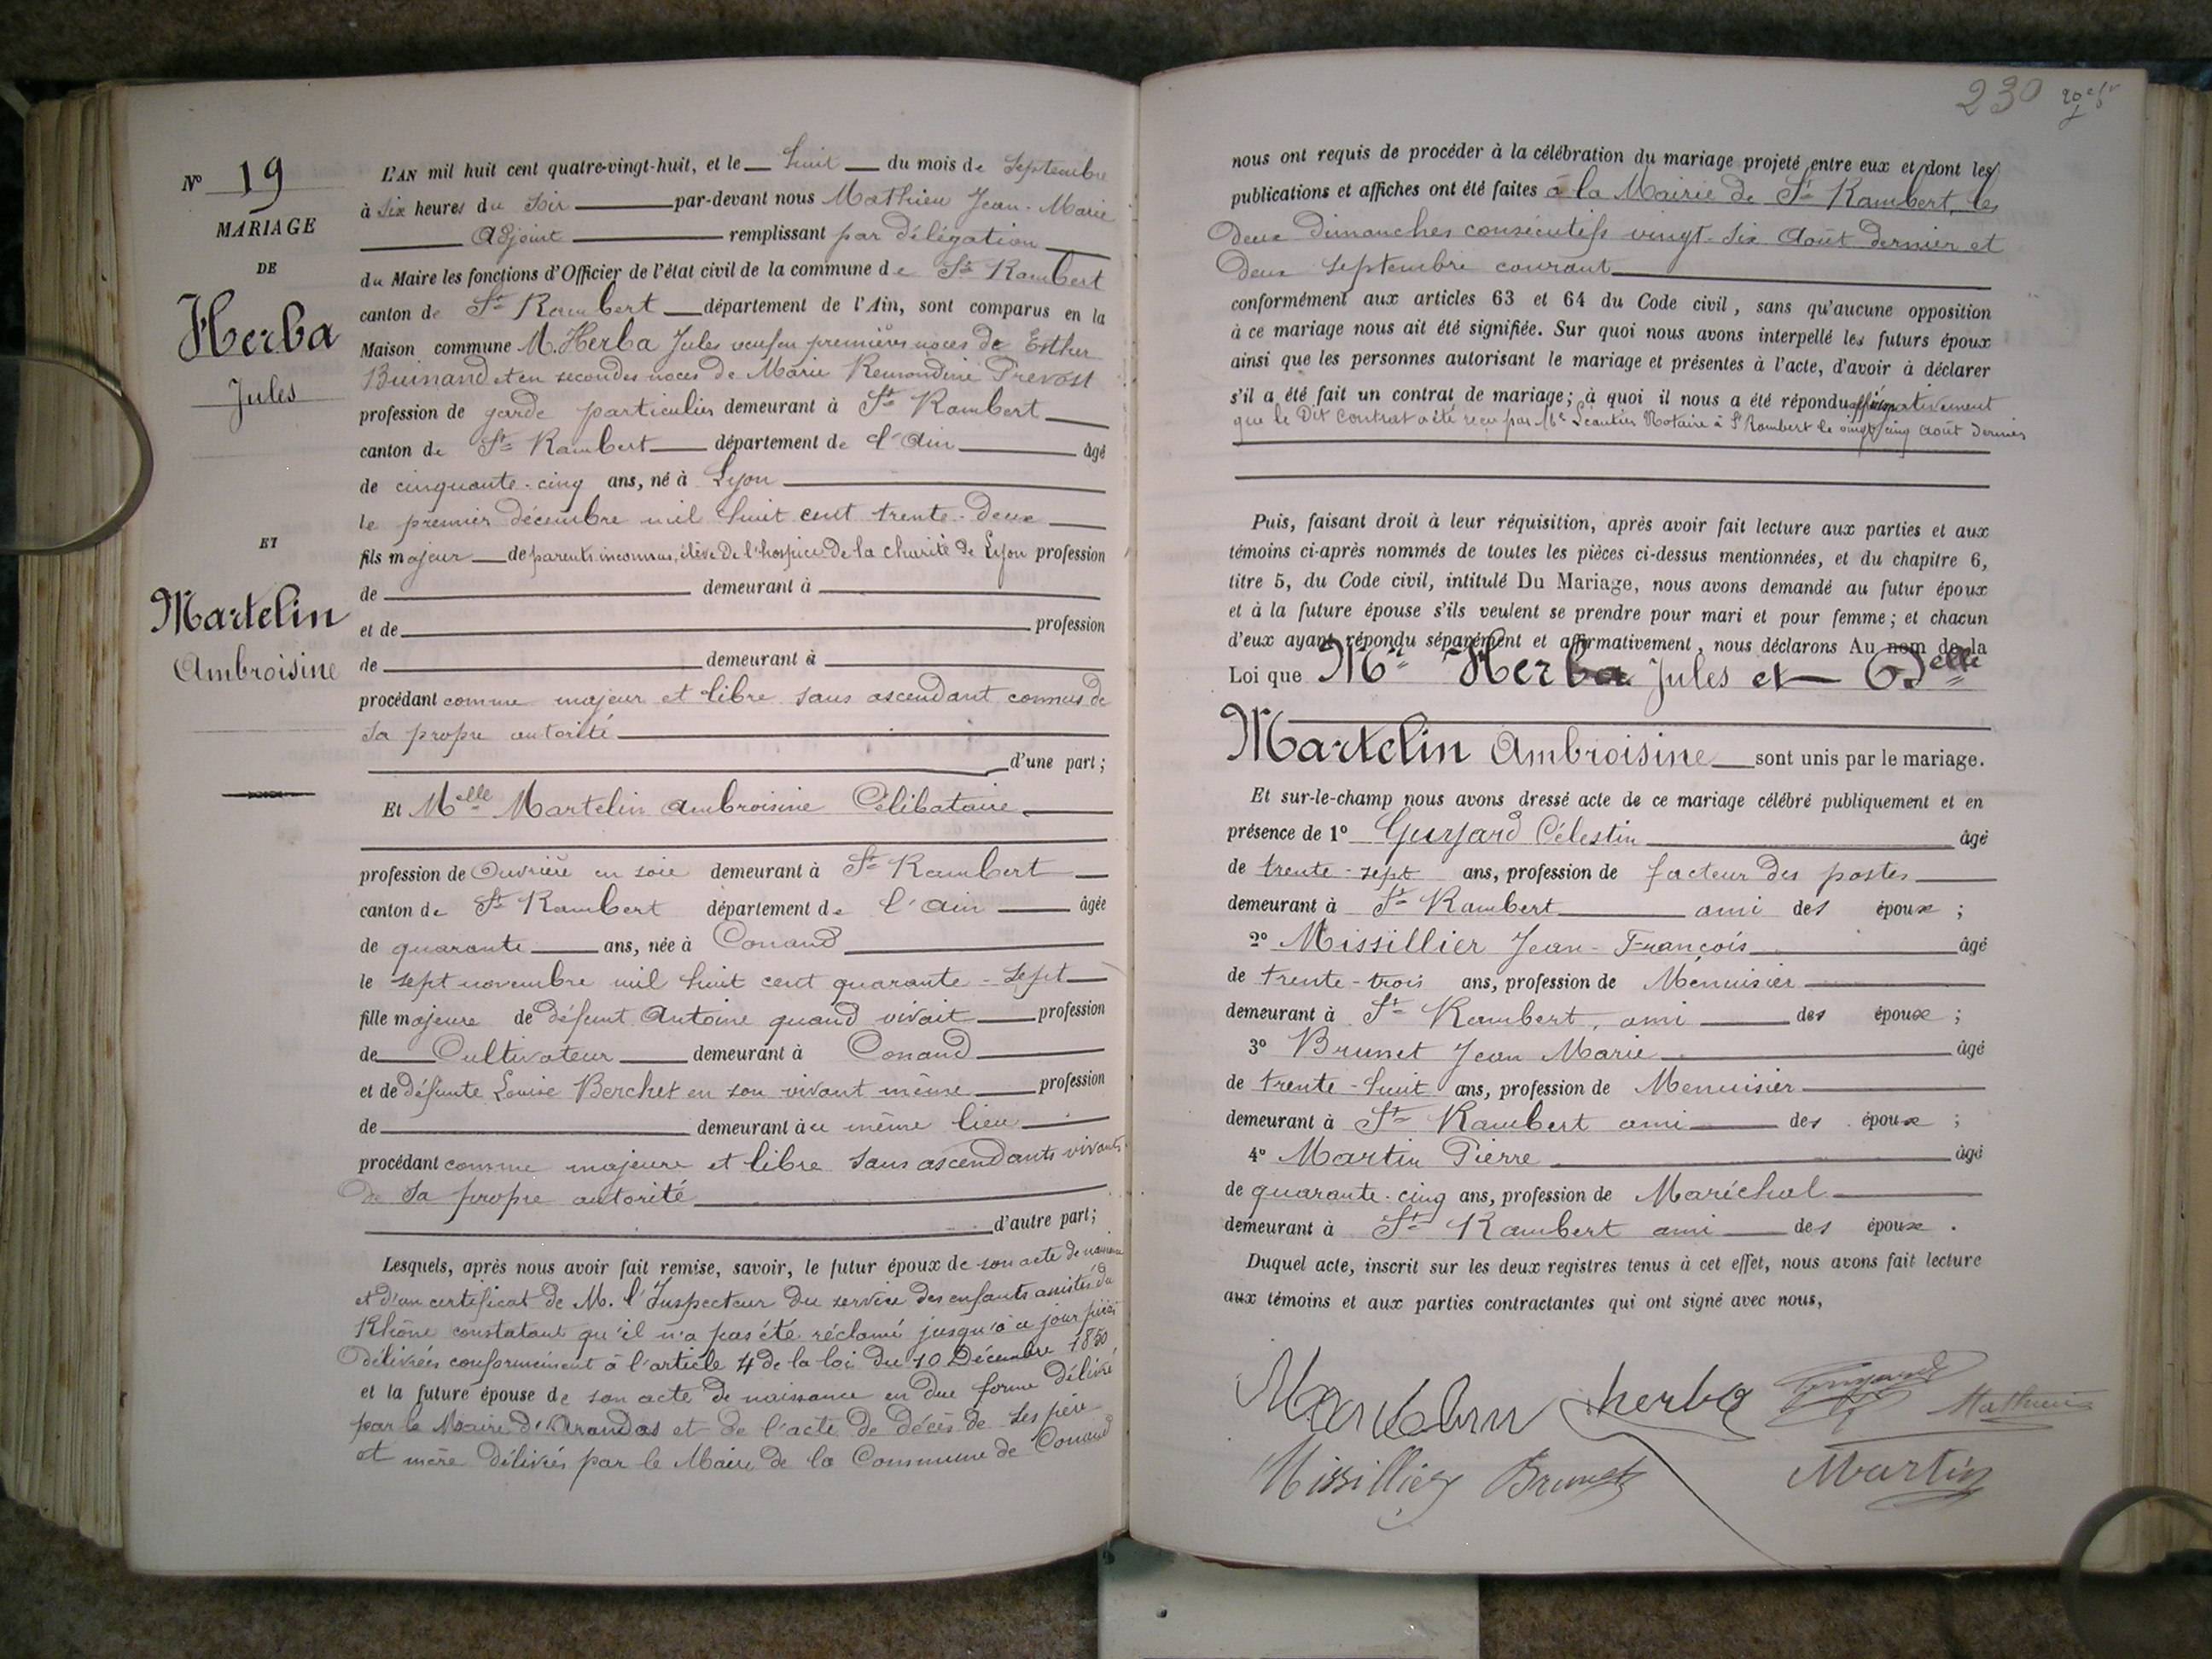 N° 19
MARIAGE
DE
Herba
Jules
ET
Martelin
Ambroisine
L'AN mil huit cent quatre-vingt-huit, et le huit du mois de Septembre
à six heures du soir par-devant nous Mathieu Jean-Marie
adjoint remplissant par délégation
du Maire les fonctions d'Officier de l'état civil de la commune de St Rambert
canton de St Rambert département de l'Ain, sont comparus en la
Maison commune M. Herba Jules veuf en premières noces de Esther
Buinand et en secondes noces de Marie Remondine Prevost
profession de garde particulier demeurant à St Rambert
canton de St Rambert département de l'Ain âgé
de cinquante-cinq ans, né à Lyon
le premier décembre mil huit cent trente-deux
fils majeur de parents inconnus, élève de l'hospice de la charité de Lyon profession
de demeurant à
et de profession
de demeurant à
procédant comme majeur et libre sans ascendant connus de
sa propre autorité
d'une part;
Et Melle Martelin Ambroisine Célibataire
profession de Ouvrière en soie demeurant à St Rambert
canton de St Rambert département de l'Ain âgée
de quarante ans, née à Conand
le sept novembre mil huit cent quarante-sept
fille majeure de défunt Antoine quand vivait profession
de Cultivateur demeurant à Conand
et de défunte Louise Berchet en son vivant même profession
de demeurant au même lieu
procédant comme majeure et libre sans ascendants vivants
de sa propre autorité
d'autre part;
Lesquels, après nous avoir fait remise, savoir, le futur époux de son acte de naissance
et d'un certificat de M. l'Inspecteur du service des enfants assistés du
Rhône constatant qu'il n'a pas été réclamé jusqu'à ce jour
délivrées conformément à l'article 4 de la loi du 10 Décembre 1850
et la future épouse de son acte de naissance en due forme délivré
par le Maire d'Arandas et de l'acte de décès de ses père
et mère délivrés par le Maire de la Commune de Conand
230
nous ont requis de procéder à la célébration du mariage projeté entre eux et dont les
publications et affiches ont été faites à la Mairie de St Rambert, les
deux dimanches consécutifs vingt-six Août dernier et
deux septembre courant
conformément aux articles 63 et 64 du Code civil, sans qu'aucune opposition
à ce mariage nous ait été signifiée. Sur quoi nous avons interpellé les futurs époux
ainsi que les personnes autorisant le mariage et présentes à l'acte, d'avoir à déclarer
s'il a été fait un contrat de mariage; à quoi il nous a été répondu affirmativement
que le dit contrat a été reçu par Me Léautier Notaire à St Rambert le vingt cinq Août dernier
Puis, faisant droit à leur réquisition, après avoir fait lecture aux parties et aux
témoins ci-après nommés de toutes les pièces ci-dessus mentionnées, et du chapitre 6,
titre 5, du Code civil, intitulé Du Mariage, nous avons demandé au futur époux
et à la future épouse s'ils veulent se prendre pour mari et pour femme; et chacun
d'eux ayant répondu séparément et affirmativement, nous déclarons Au nom de la
Loi que Mr Herba Jules et Delle
Martelin Ambroisine sont unis par le mariage.
Et sur-le-champ nous avons dressé acte de ce mariage célébré publiquement et en
présence de 1° Guyard Célestin âgé
de trente-sept ans, profession de facteur des postes
demeurant à St Rambert ami des époux ;
2° Missillier Jean-François âgé
de trente-trois ans, profession de Menuisier
demeurant à St Rambert, ami des époux ;
3° Brunet Jean Marie âgé
de trente-huit ans, profession de Menuisier
demeurant à St Rambert ami des époux ;
4° Martin Pierre âgé
de quarante-cinq ans, profession de Maréchal
demeurant à St Rambert ami des époux .
Duquel acte, inscrit sur les deux registres tenus à cet effet, nous avons fait lecture
aux témoins et aux parties contractantes qui ont signé avec nous,
Martelin herba Guyard Mathieu
Missillier Brunet Martin